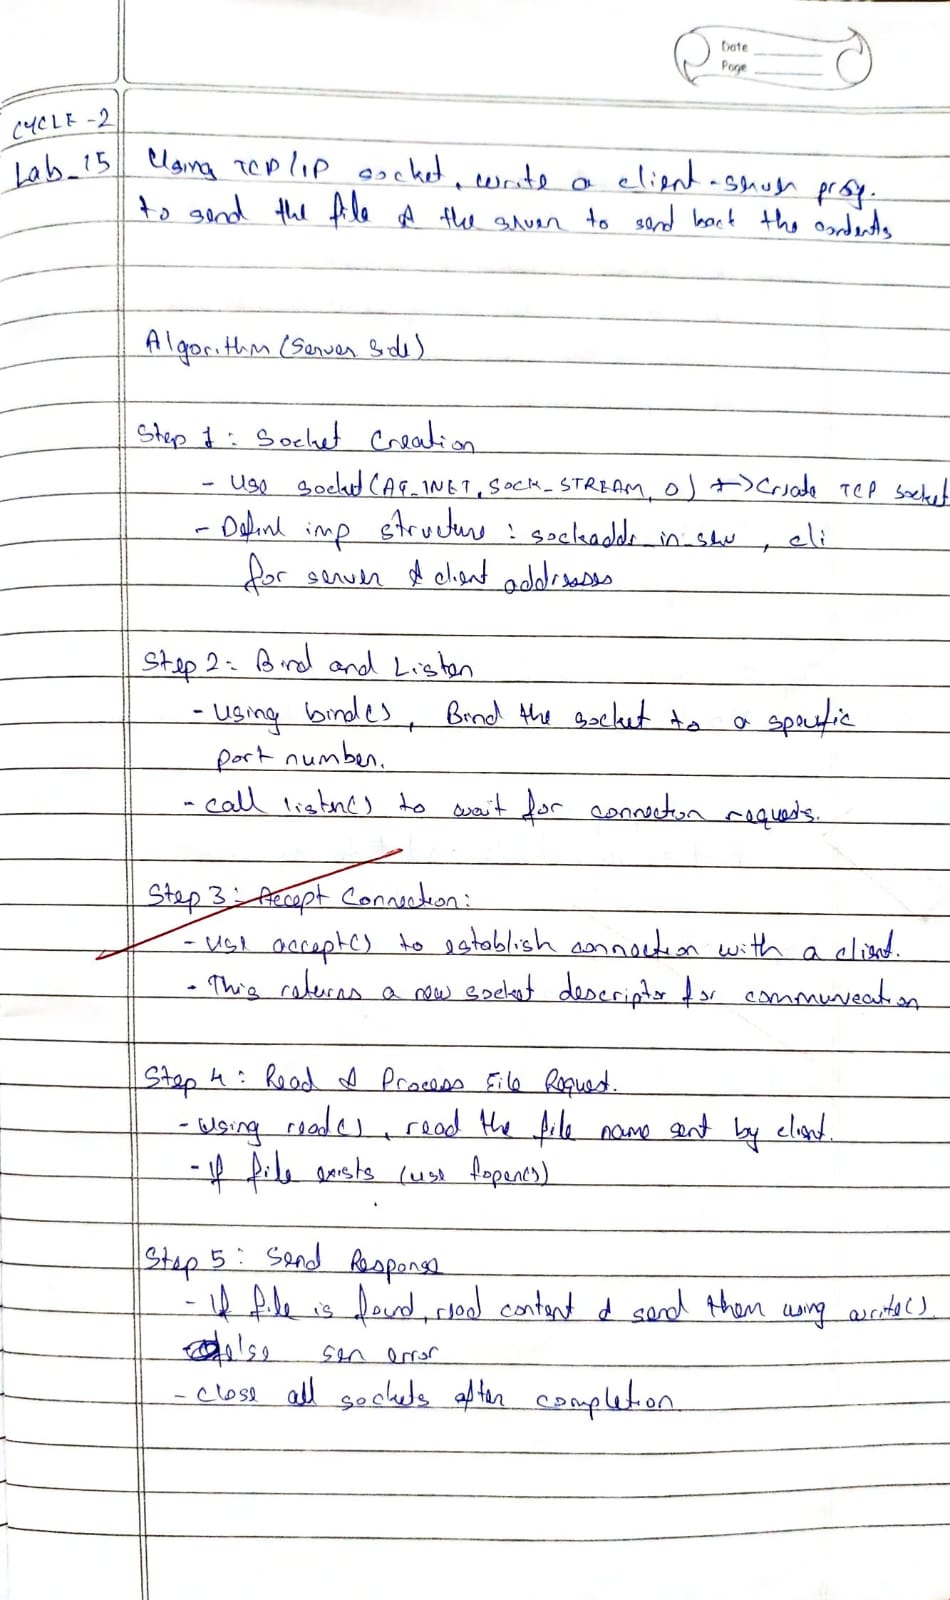 Date
Page
CYCLE-2
Lab-15 Using TCP/IP socket, write a client-server prog.
to send the file & the server to send back the contents
Algorithm (Server Side)
Step 1: Socket Creation
- Use socket(AF_INET, SOCK_STREAM, 0) → Create TCP socket
- Define imp structure: sockaddr_in ser, cli
for server & client addresses
Step 2: Bind and Listen
- Using bind(), Bind the socket to a specific
port number.
- call listen() to wait for connection requests.
Step 3: Accept Connection:
- Use accept() to establish connection with a client.
- This returns a new socket descriptor for communication
Step 4: Read & Process File Request.
- Using read(), read the file name sent by client.
- If file exists (use fopen())
Step 5: Send Response
- If file is found, read content & send them using write().
else sen error
- Close all sockets after completion